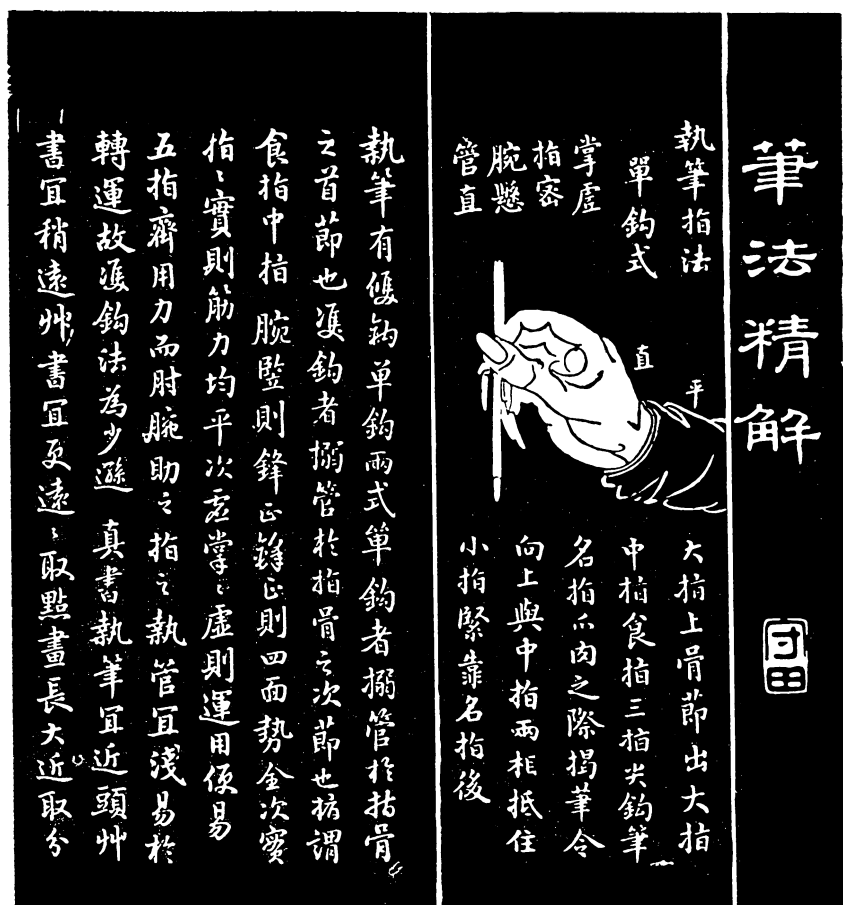 筆法精解
執筆指法
單鈎式
掌虛
指密
腕懸
管直
直
平
大指上骨節出大指
中指食指三指尖鈎筆
名指爪肉之際揭筆令
向上與中指兩相抵住
小指緊靠名指後
執筆有雙鈎單鈎兩式單鈎者搦管於指骨
之首節也雙鈎者搦管於指骨之次節也指謂
食指中指 腕豎則鋒正鋒正則四面勢全次實
指〻實則筋力均平次虛掌〻虛則運用便易
五指齊用力而肘腕助之指之執管宜淺易於
轉運故雙鈎法為少遜 真書執筆宜近頭艸
書宜稍遠艸書宜更遠〻取點畫長大近取分